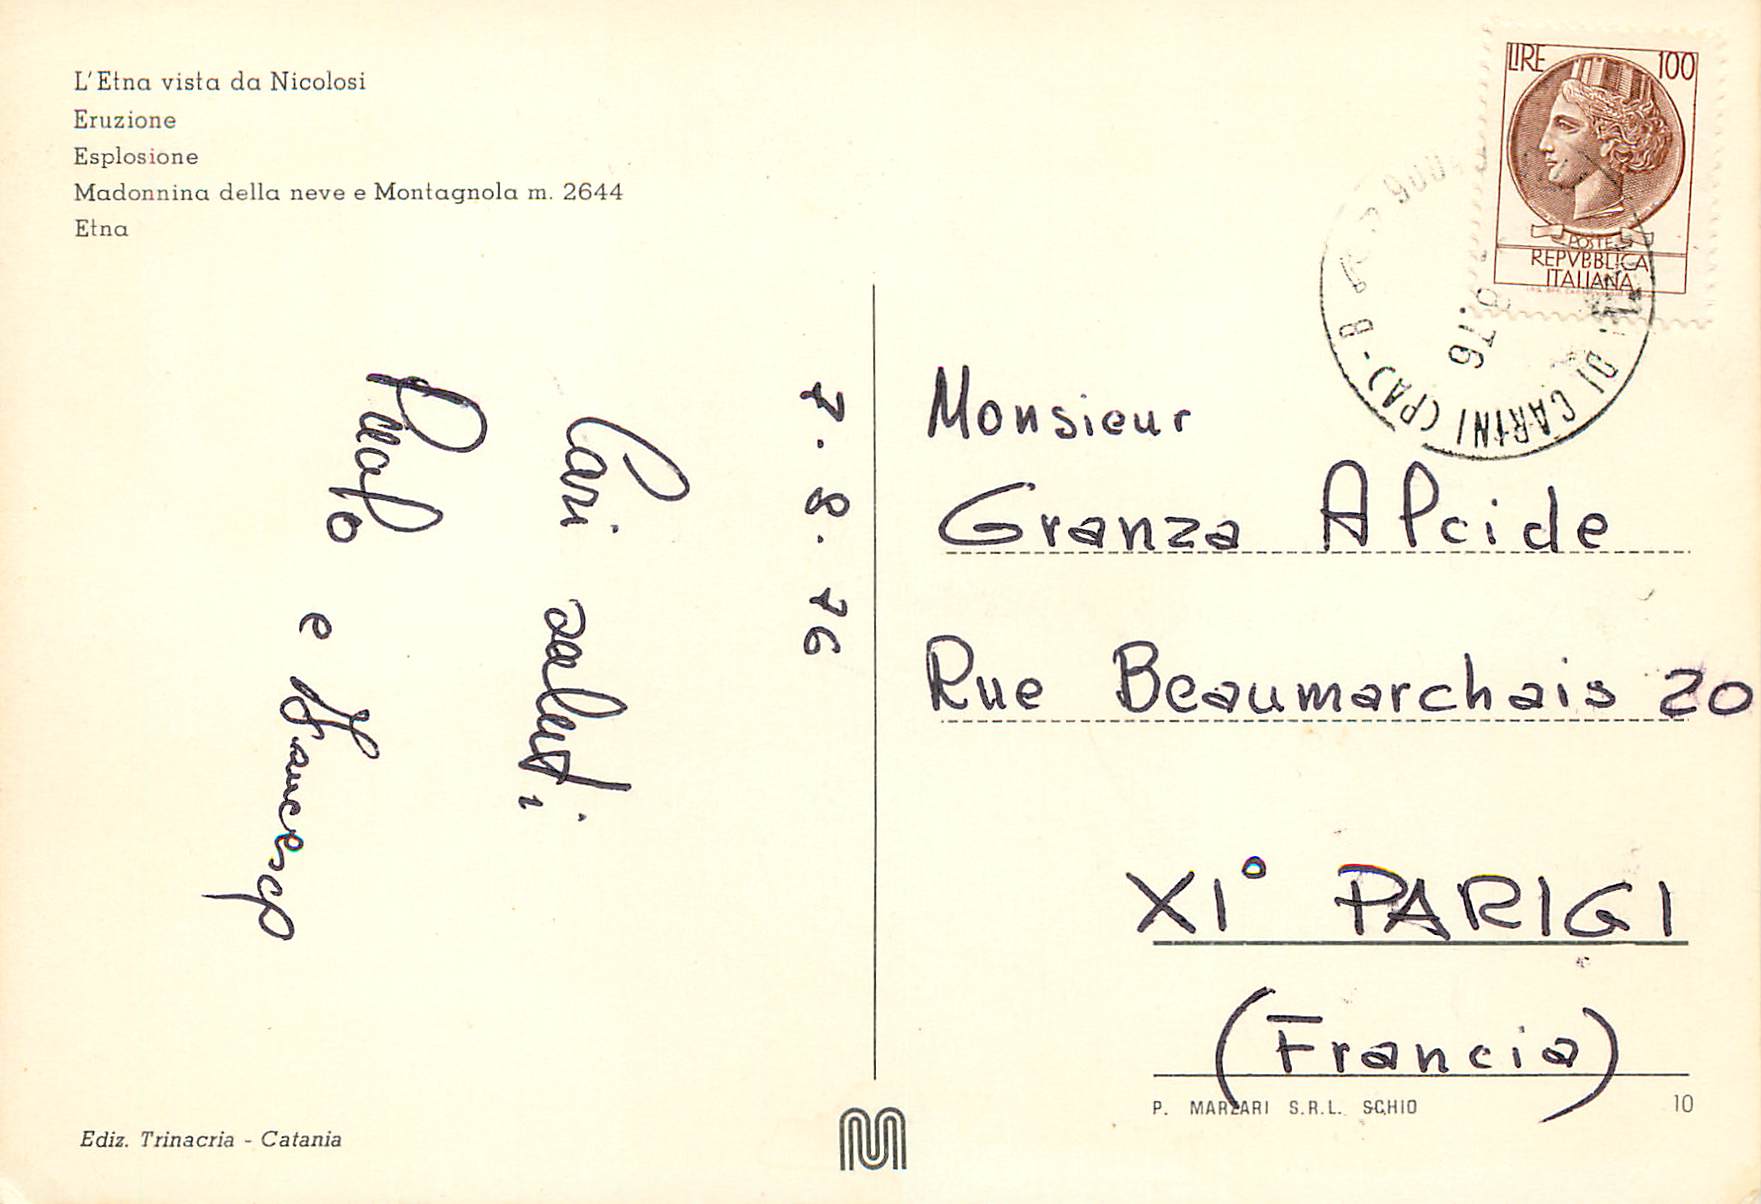 L'Etna vista da Nicolosi
Eruzione
Esplosione
Madonnina della neve e Montagnola m. 2644
Etna
LIRE 100
POSTE
REPVBBLICA
ITALIANA
DI CARINI (PA) - B
8.76
7.8.76
Cari saluti
e
Monsieur
Granza Alcide
Rue Beaumarchais 20
XI° PARIGI
(Francia)
P. MARZARI S.R.L. SCHIO 10
Ediz. Trinacria - Catania